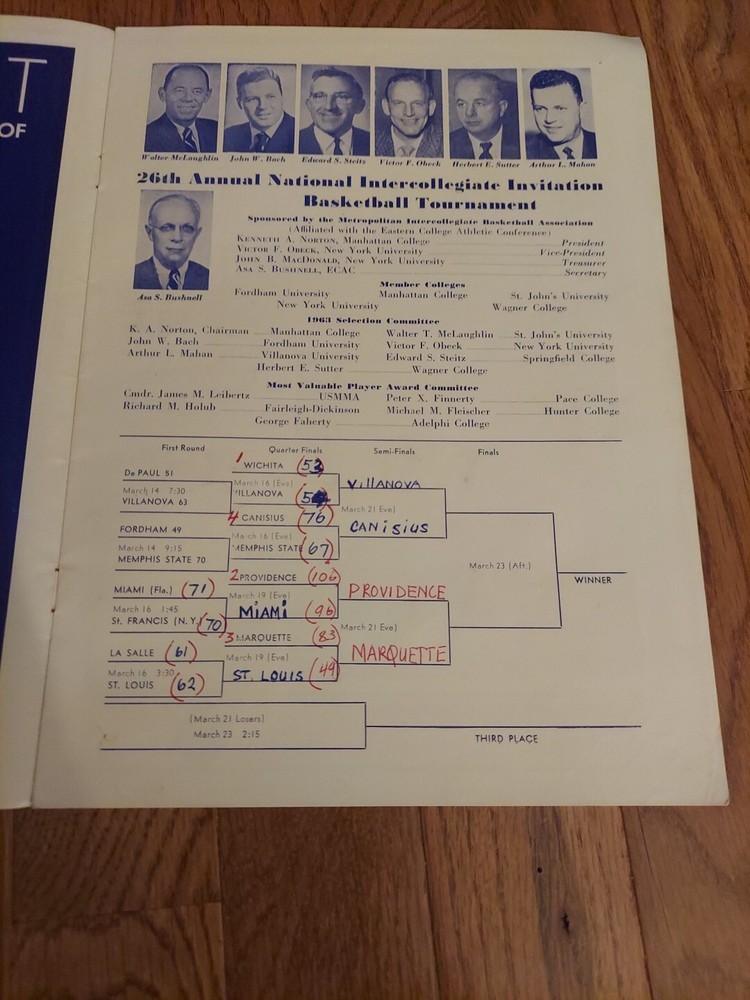 T
OF
Walter McLaughlin John W. Bach Edward S. Steitz Victor F. Obeck Herbert E. Sutter Arthur L. Mahan
26th Annual National Intercollegiate Invitation
Basketball Tournament
Asa S. Bushnell
Sponsored by the Metropolitan Intercollegiate Basketball Association
(Affiliated with the Eastern College Athletic Conference)
KENNETH A. NORTON, Manhattan College President
VICTOR F. OBECK, New York University Vice-President
JOHN B. MACDONALD, New York University Treasurer
ASA S. BUSHNELL, ECAC Secretary
Member Colleges
Fordham University Manhattan College St. John's University
New York University Wagner College
1963 Selection Committee
K. A. Norton, Chairman Manhattan College Walter T. McLaughlin St. John's University
John W. Bach Fordham University Victor F. Obeck New York University
Arthur L. Mahan Villanova University Edward S. Steitz Springfield College
Herbert E. Sutter Wagner College
Most Valuable Player Award Committee
Cmdr. James M. Leibertz USMMA Peter X. Finnerty Pace College
Richard M. Holub Fairleigh-Dickinson Michael M. Fleischer Hunter College
George Faherty Adelphi College
First Round Quarter Finals Semi-Finals Finals
1 WICHITA (53)
De PAUL 51
March 16 (Eve) VILLANOVA
March 14 7:30 VILLANOVA
VILLANOVA 63
4 CANISIUS (76) March 21 (Eve)
FORDHAM 49 CANISIUS
March 16 (Eve)
March 14 9:15 MEMPHIS STATE (67)
MEMPHIS STATE 70
March 23 (Aft.)
2 PROVIDENCE (106)
WINNER
MIAMI (Fla.) (71) PROVIDENCE
March 19 (Eve)
March 16 1:45 MIAMI (96)
St. FRANCIS (N.Y.) (70) March 21 Eve)
3 MARQUETTE (83)
LA SALLE (61) MARQUETTE
March 19 (Eve)
March 16 3:30 ST. LOUIS (49)
ST. LOUIS (62)
(March 21 Losers)
March 23 2:15
THIRD PLACE